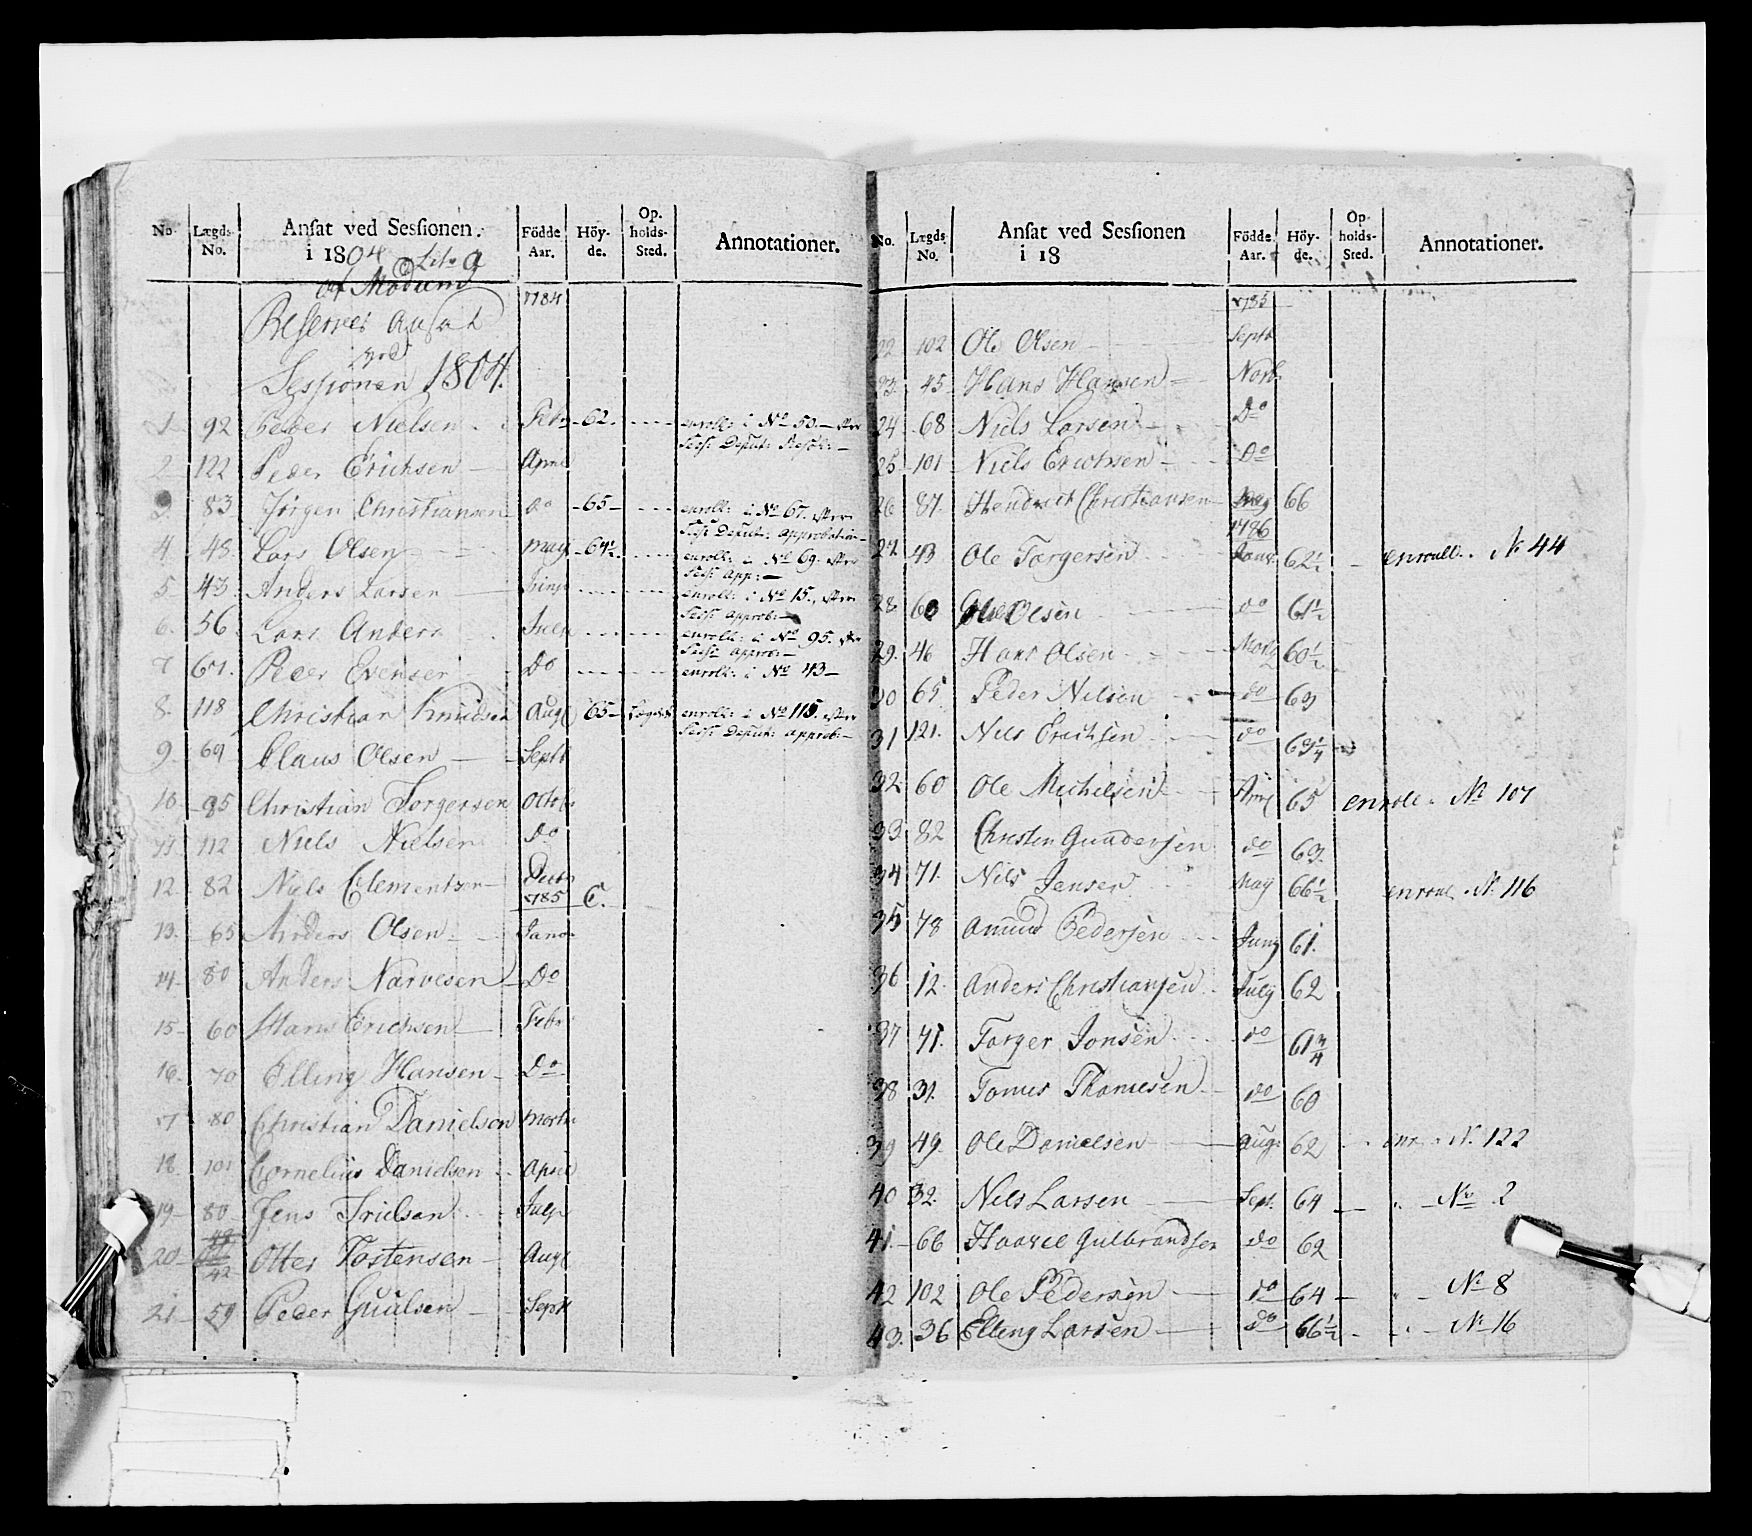 No. Lægds No. Ansat ved Sessionen. i 1804 Födde Aar. Höyde. Opholds-Sted. Annotationer.
Lit. a
af Modum
Reserver Ansat 1784
ved
Sessionen 1804.
1 92 Peder Nielsen Febr 62. enroll: i No 50.
Sess: Deput: Resol:
2 122 Peder Erichsen April
3. 83 Jørgen Christiansen do 65 enroll: i No 67.
Sess: Deput: approbation
4. 48 Lars Olsen May 64½ enroll: i No 69.
Sess: App:
5 43 Anders Larsen enroll: i No 15.
Sess: approb:
6. 56 Lars Anders July enroll: i No 95.
Sess: approb:
7 67. Peder Evensen Do enroll: i No 43
8. 118 Christian Knudsen Augt 65 enroll: i No 115.
Sess: Deput: approb:
9. 69 Claus Olsen Septb
10. 95 Christian Torgersen Octob
11 112 Niels Nielsen Do
12. 82 Niels Clementsen Decbr
1785 C.
13. 65 Anders Olsen Janr
14 80 Anders Narvesen Do
15 60 Hans Erichsen Febr
16. 70 Elling Hansen Do
17 80 Christian Danielsen Marti
18. 101 Cornelius Danielsen April
19 80 Jens July
20 42 Otter Tostensen Augt
21 59 Peder Septb
No. Lægds No. Ansat ved Sessionen i 18 Födde Aar. Höyde. Opholds-Sted. Annotationer.
1785
22 102 Ole Olsen Septb
23. 45 Hans Hansen Novb.
24 68 Niels Larsen Do
25 101 Niels Erichsen Do
26 87. Hendrick Christiansen 66
1786
27. 43 Ole Torgersen Janr. 62½ enroull. No 44
28 60 Ole Olsen do 61½
29. 46 Hans Olsen Marty 60½
30 65 Peder Nilsen do 63
31 121. Nils Erichsen do 63¼
32 60 Ole Michelsen April 65 enrole No 107
33 82 Christen Gundersen do 63.
34 71. Nils Jensen May 66½ enroul. No 116
35 78 Amund Pedersen Juny 61.
36 12. Anders Christiansen July 62
37 41. Torger Jonsen do 61¾
38 31. Tomes Thomesen do 60
39 49. Ole Danielsen Aug. 62 enr. No. 122
40 32. Nils Larsen Sept. 64 " No 2
41. 66 Haavel Gulbrandsen do 62
42 102 Ole Pedersen do 64 " No 8
43. 36 Elling Larsen do 66½ " No 16